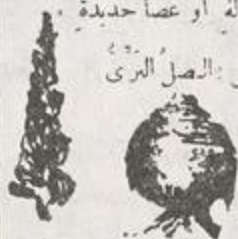 لة او عصا حديدة
بالبصل البرّى